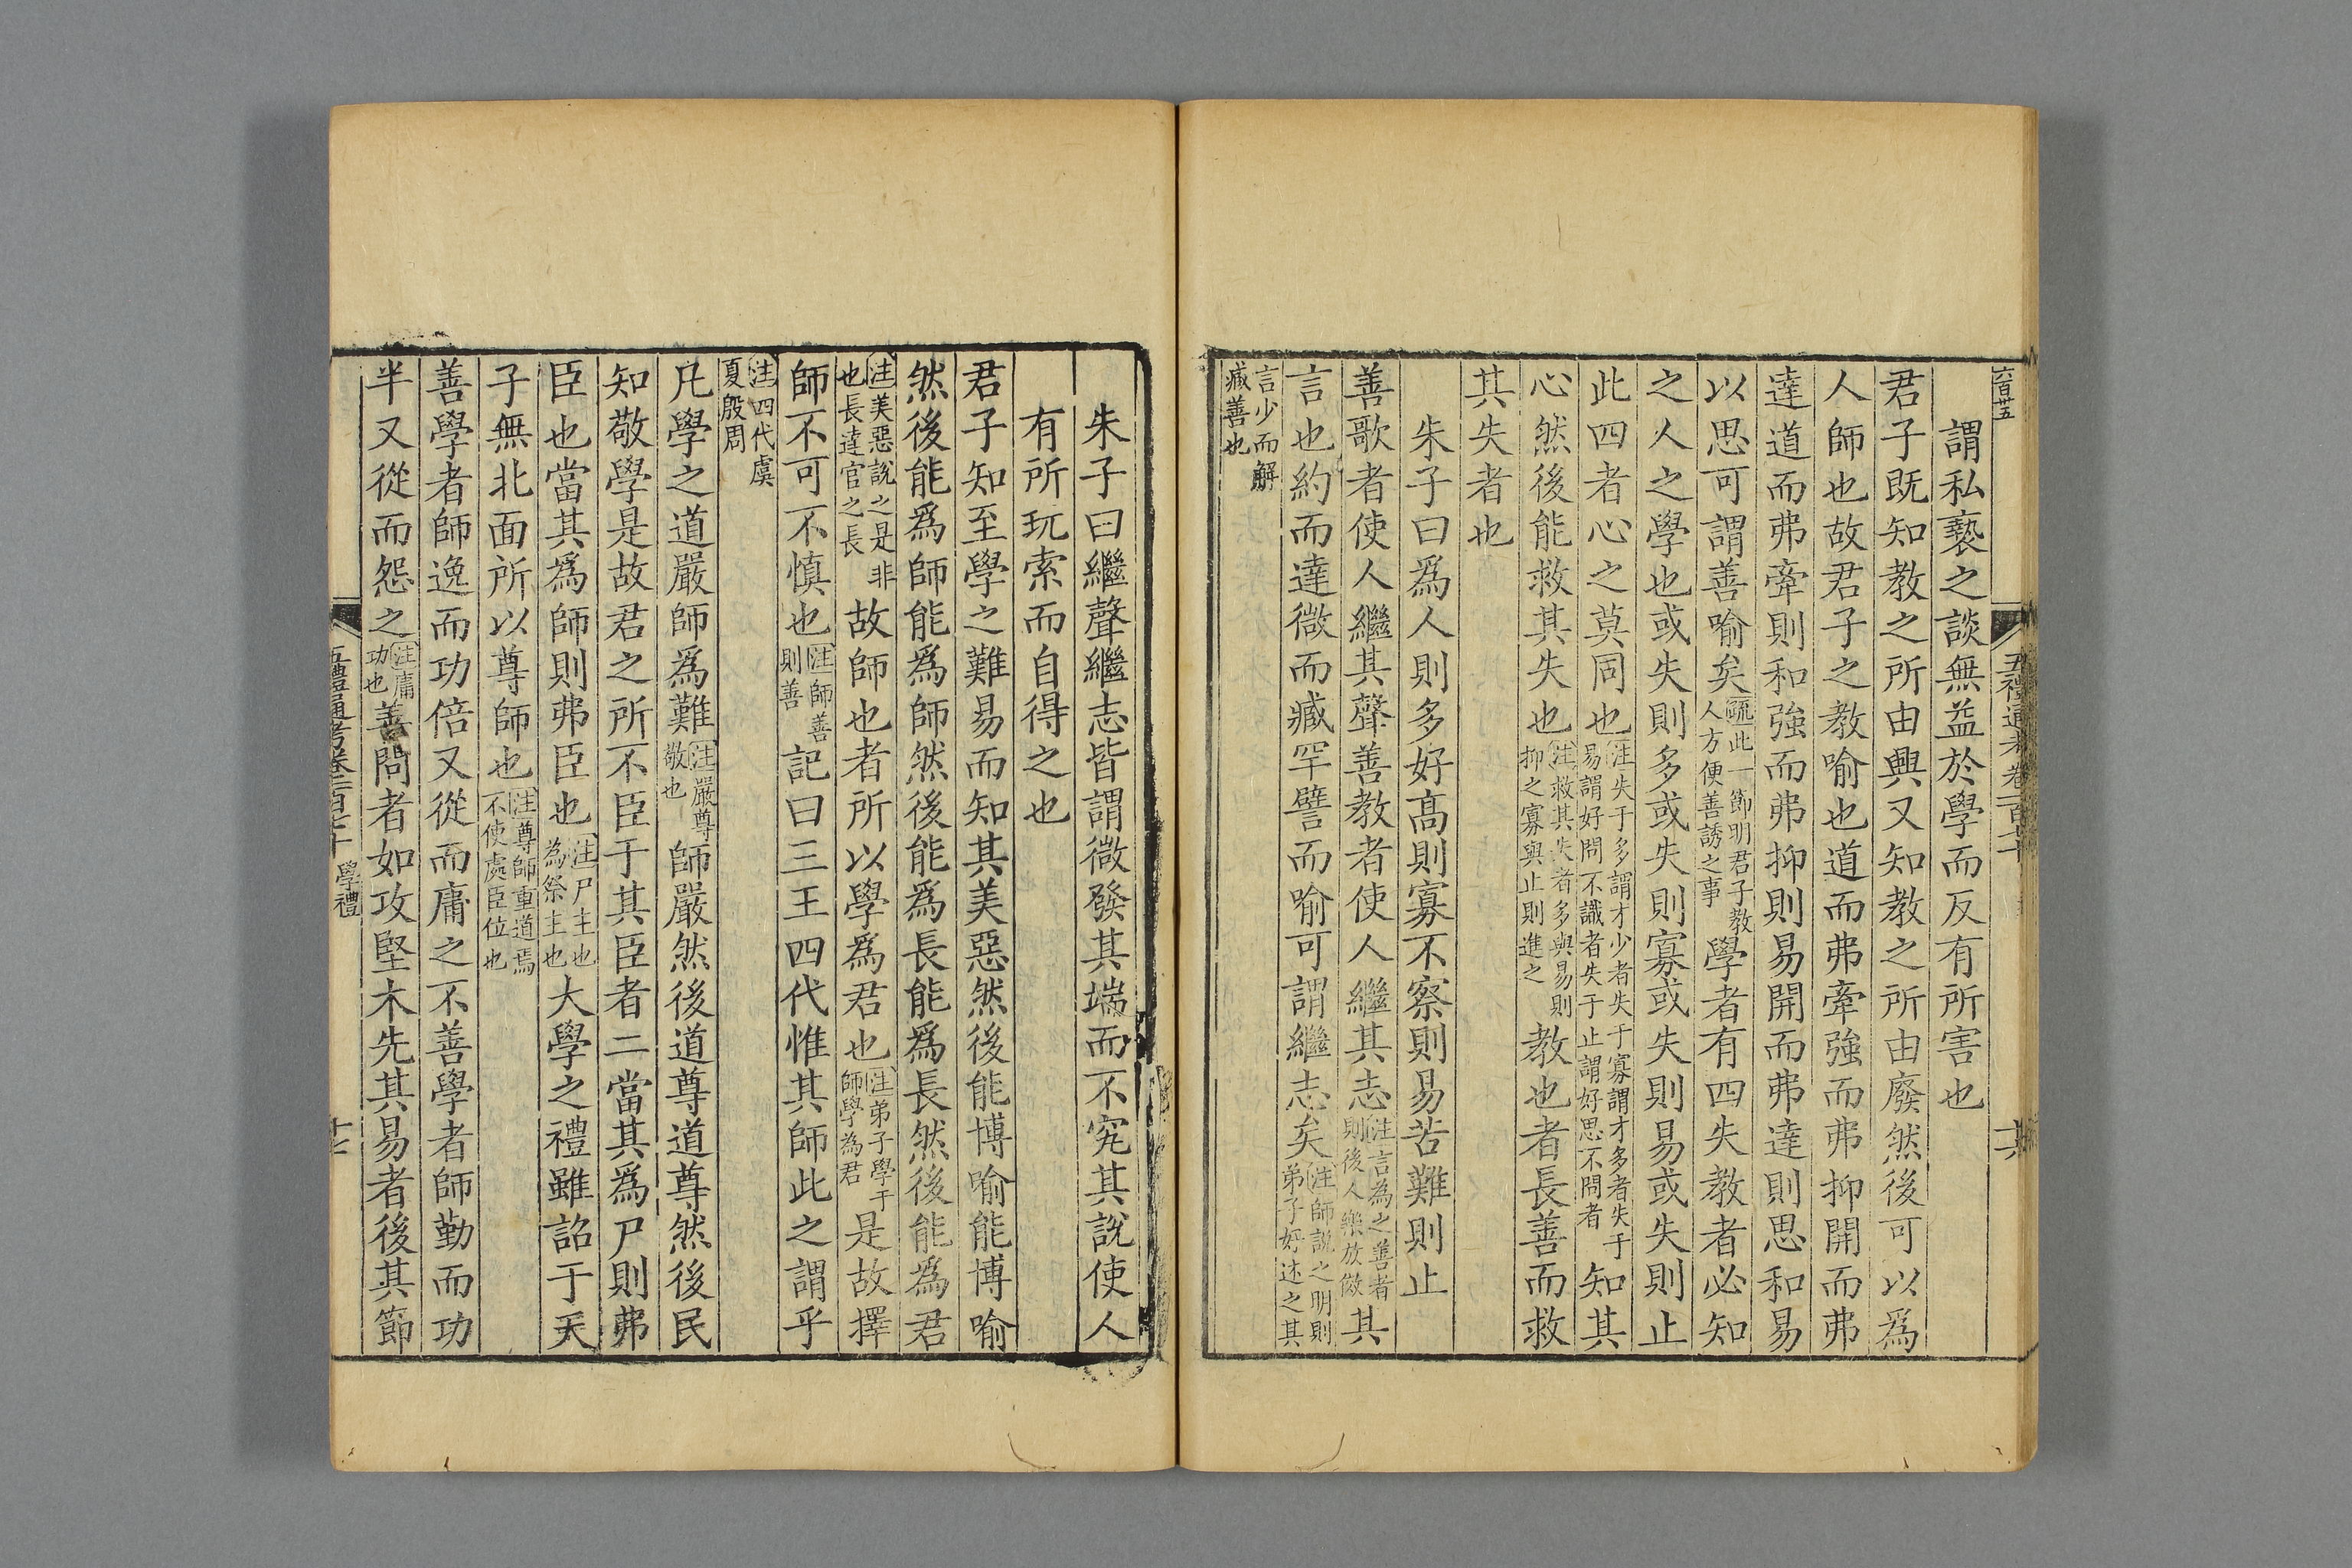 六百廿五
五禮通考卷一百七十
六
謂私褻之談無益於學而反有所害也
君子既知教之所由興又知教之所由廢然後可以爲
人師也故君子之教喻也道而弗牽強而弗抑開而弗
達道而弗牽則和強而弗抑則易開而弗達則思和易
以思可謂善喻矣疏此一節明君子教人方便善誘之事學者有四失教者必知
之人之學也或失則多或失則寡或失則易或失則止
此四者心之莫同也注失于多謂才少者失于寡謂才多者失于易謂好問不識者失于止謂好思不問者知其
心然後能救其失也注救其失者多與易則抑之寡與止則進之教也者長善而救
其失者也
朱子曰爲人則多好高則寡不察則易苦難則止
善歌者使人繼其聲善教者使人繼其志注言為之善者則後人樂放傚其
言也約而達微而臧罕譬而喻可謂繼志矣注師說之明則弟子好述之其
言少而解臧善也
朱子曰繼聲繼志皆謂微發其端而不究其說使人
有所玩索而自得之也
君子知至學之難易而知其美惡然後能博喻能博喻
然後能爲師能爲師然後能爲長能爲長然後能爲君
注美惡說之是非也長達官之長故師也者所以學爲君也注弟子學于師學為君是故擇
師不可不慎也注師善則善記曰三王四代惟其師此之謂乎
注四代虞夏殷周
凡學之道嚴師爲難注嚴尊敬也師嚴然後道尊道尊然後民
知敬學是故君之所不臣于其臣者二當其爲尸則弗
臣也當其爲師則弗臣也注尸主也為祭主也大學之禮雖詔于天
子無北面所以尊師也注尊師重道焉不使處臣位也
善學者師逸而功倍又從而庸之不善學者師勤而功
半又從而怨之注庸功也善問者如攻堅木先其易者後其節
學禮
十七